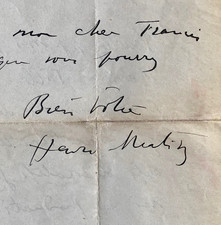 mon cher Francis
que vous pourrez
Bien Votre
Henri Matisse